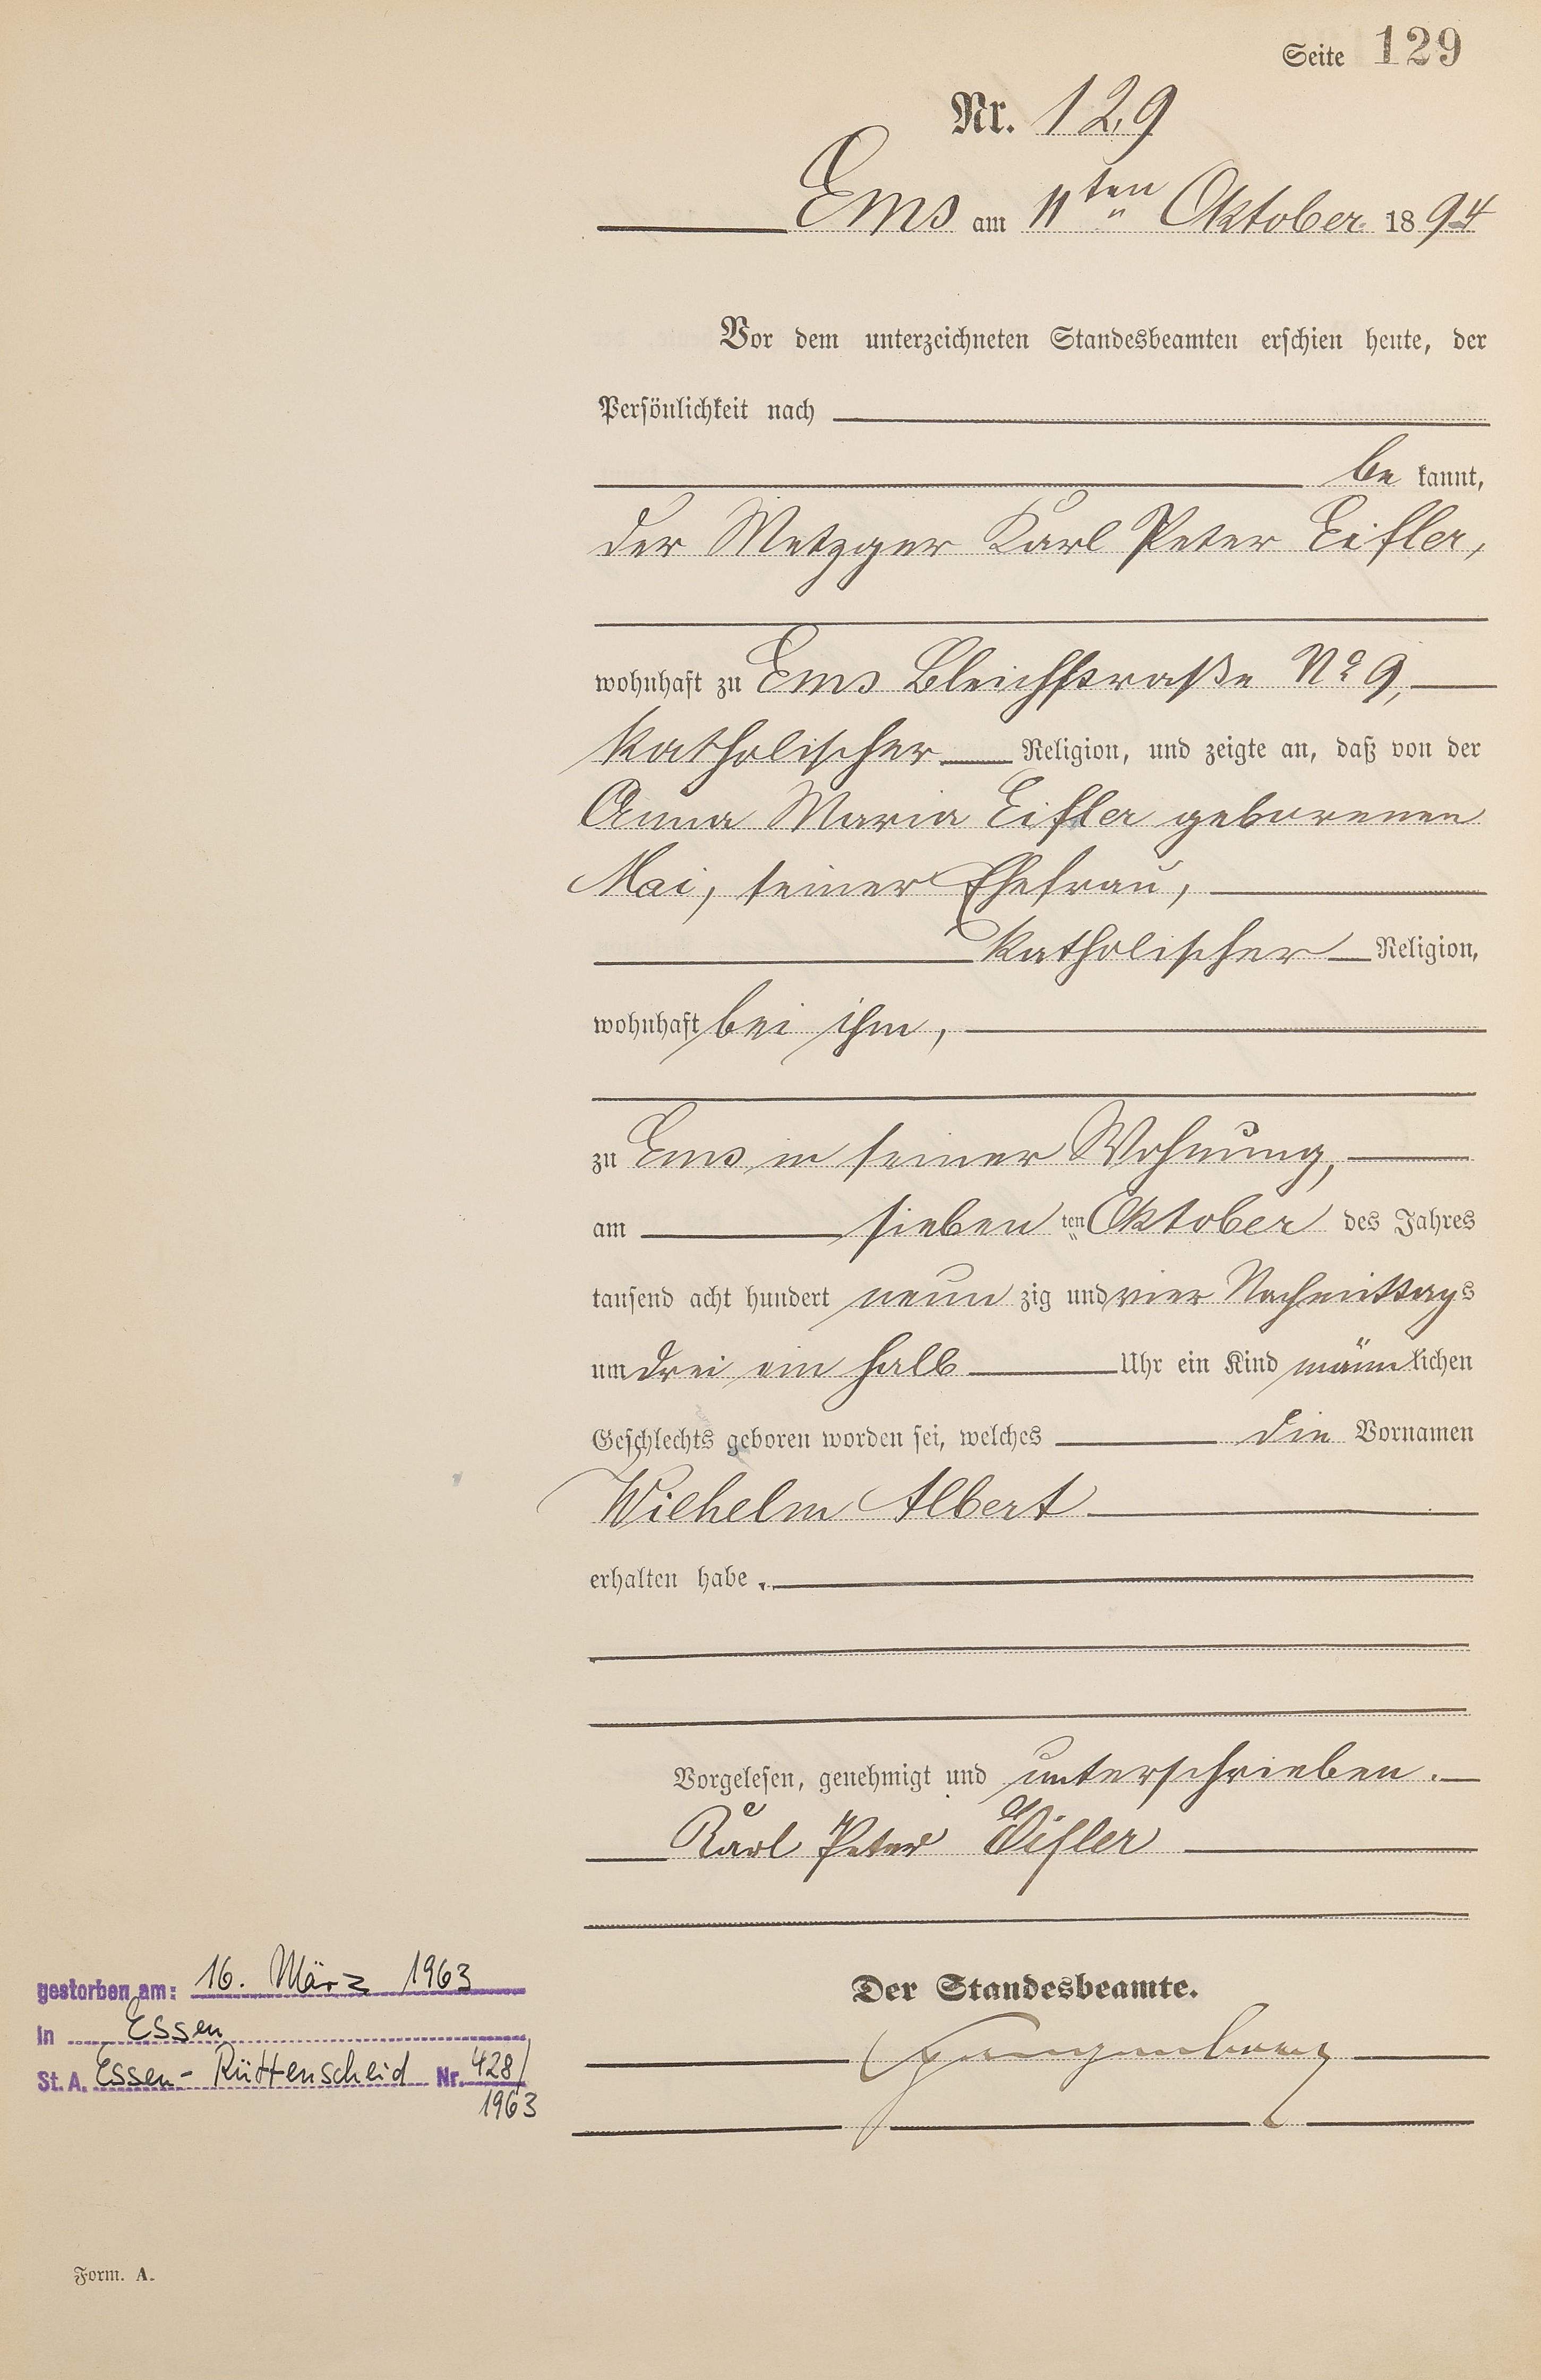 Seite 129
Nr. 129
Ems am 11ten Oktober 1894
Vor dem unterzeichneten Standesbeamten erschien heute, der
Persönlichkeit nach
be kannt,
der Metzger Karl Peter Eifler,
wohnhaft zu Ems Bleichstraße No 9,
katholischer Religion, und zeigte an, daß von der
Anna Maria Eifler geborenen
Mai, seiner Ehefrau,
katholischer Religion,
wohnhaft bei ihm,
zu Ems in seiner Wohnung,
am sieben ten Oktober des Jahres
tausend acht hundert neun zig und vier Nachmittags
um drei ein halb Uhr ein Kind männlichen
Geschlechts geboren worden sei, welches die Vornamen
Wilhelm Albert
erhalten habe.
Vorgelesen, genehmigt und unterschrieben.
Karl Peter Eifler
Der Standesbeamte.
gestorben am: 16. März 1963
in Essen
St. A. Essen-Rüttenscheid Nr. 428/
1963
Form. A.